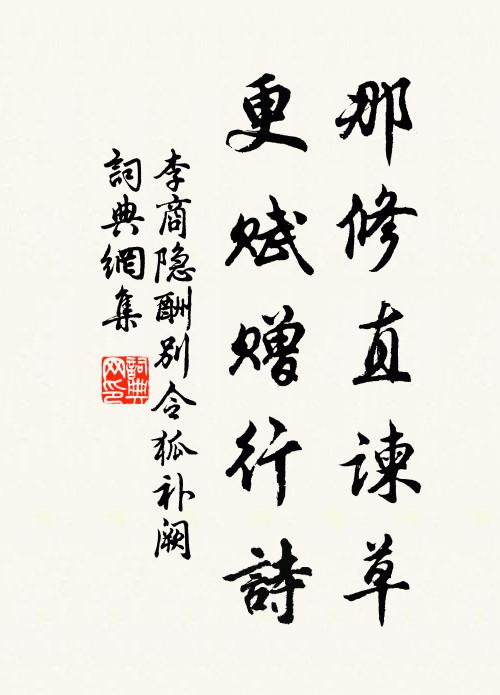 那修直谏草
更赋赠行詩
李商隐酬别令狐补阙
詞典網集
詞典網印